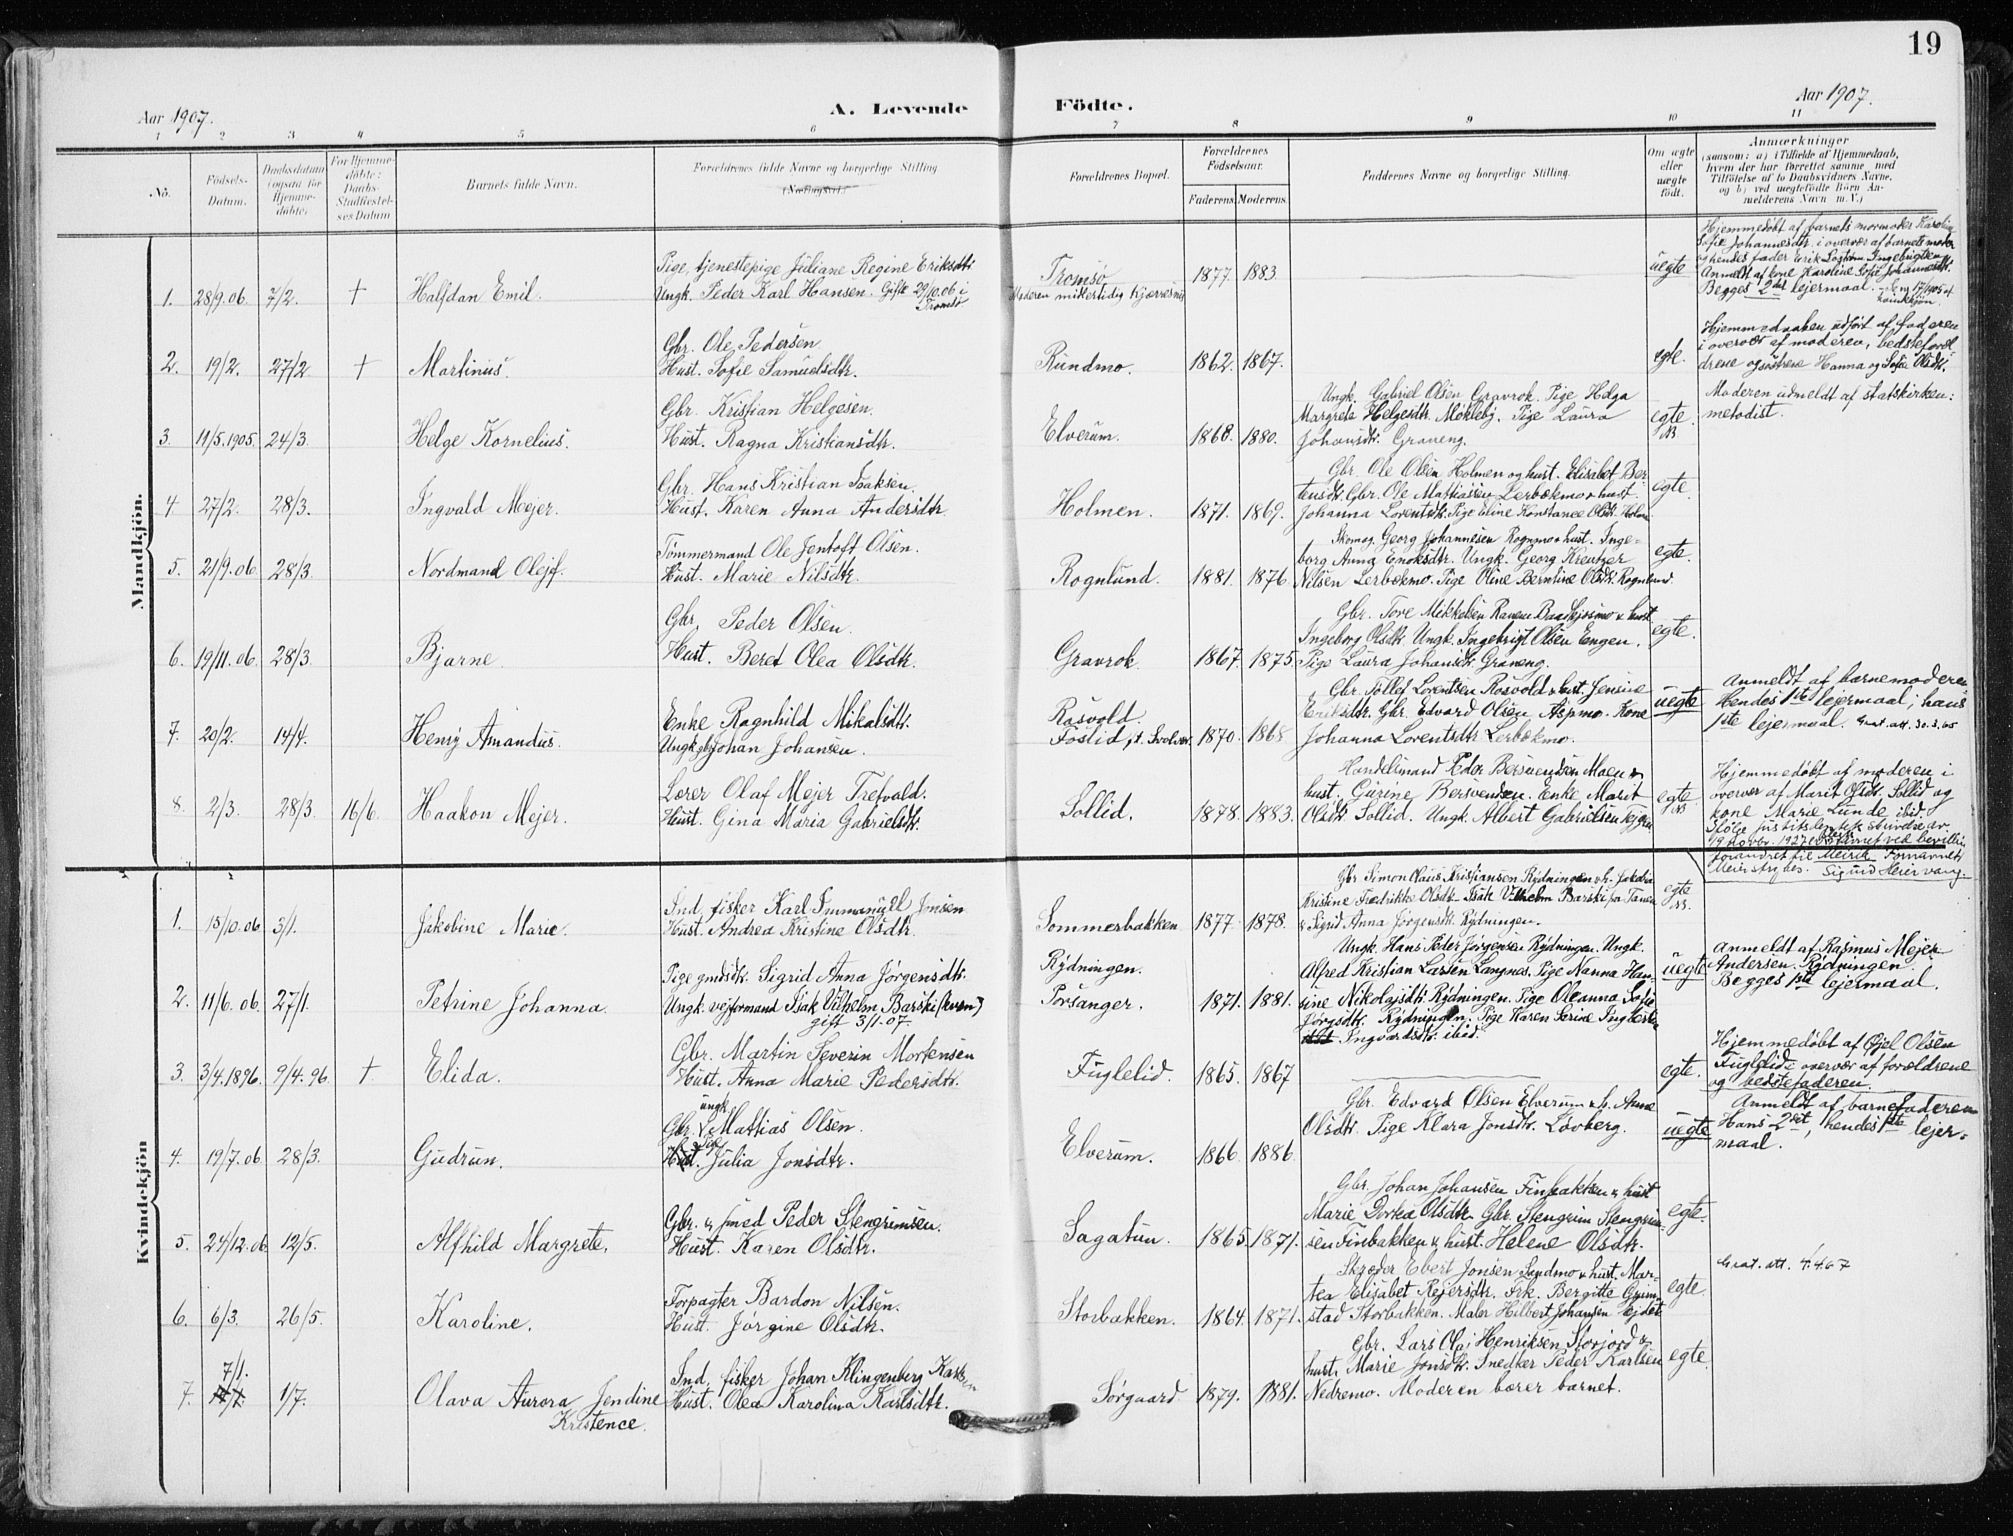 19
Aar 1907.
A. Levende Födte.
Aar 1907.
1 2 3 4 5 6 7 8 9 10 11
No.
Födsels-Datum.
Daabsdatum (ogsaa for Hjemme-döbte)
For Hjemme-döbte: Daabs-Stadfæstel-ses Datum
Barnets fulde Navn.
Forældrenes fulde Navne og borgerlige Stilling
Forældrenes Bopæl.
Forældrenes Födselsaar.
Faderens. Moderens.
Faddernes Navne og borgerlige Stilling.
Om ægte eller uægte födt.
Anmærkninger
(saasom: a) i Tilfælde af Hjemmedaab,
hvem der har forrettet samme med
Tilföielse af to Daabsvidners Navne,
og b) ved uægtefödte Börn An-
melderens Navn m. V.)
Mandkjön.
1. 28/9.06. 7/2. + Halfdan Emil.
Pige, tjenestepige Juliane Regine Eriksdtr
Ungk. Peder Karl Hansen. Gifte 29/10.06 i Tromsø
Tromsø
Moderen midlertidig Kjærresnes
1877. 1883
uegte
Hjemmedøbt af barnets mormoder Karoline
Sofie Johannesdtr. i overvær af barnets moder
Anmeldt af kone Karoline Sofie Johannesdtr.
Begges 2det lejermaal.
2. 19/2. 27/2 + Martinus.
Gbr. Ole Pedersen
Hust. Sofie Samuelsdtr.
Rundmo.
1862. 1867.
egte.
Hjemmedaaben udført af faderen
i overvær af moderen, bedsteforæl-
drene og søstrene Hanna og Sofie Olsdtr.
3. 11/5.1905. 24/3. Helge Kornelius.
Gbr. Kristian Helgesen.
Hust. Ragna Kristiansdtr.
Elverum.
1868. 1880.
Ungk. Gabriel Olsen Gravrok. Pige Helga
Margrete Helgesdtr. Mokleby. Pige Laura
Johansdtr. Graneng.
egte.
Moderen udmeldt af statskirken:
metodist.
4 27/2. 28/3. Ingvald Mejer.
Gbr. Hans Kristian Isaksen.
Hust. Karen Anna Andersdtr
Holmen.
1871. 1869.
Gbr. Ole Olsen Holmen og hust. Elisabet Ber-
tensdtr. Gbr. Ole Mattiassen Lerbækmo & hust.
Johanna Lorentsdtr. Pige Eline Konstance Olsdtr. Holmen
egte.
5. 21/9.06. 28/3. Nordmand Olejf.
Tømmermand Ole Jentoft Olsen.
Hust. Marie Nilsdtr.
Rognlund.
1881. 1876.
Skomag. Georg Johannesen Rognmo & hust. Inge-
borg Anna Enoksdtr. Ungk. Georg Kreutzer
Nilsen Lerbækmo. Pige Oline Berntine Olsdtr. Rognlund.
egte.
6. 19/11.06. 28/3. Bjarne.
Gbr. Peder Olsen.
Hust. Beret Olea Olsdtr.
Gravrok.
1867. 1875.
Gbr. Tore Mikkelsen & hust
Ingeborg Olsdtr. Ungk. Ingebrigt Olsen Engen.
Pige Laura Johansdtr. Graneng.
egte.
7. 20/2. 14/4. Henry Amandus.
Enke Ragnhild Mikalsdtr.
Ungk. Johan Johansen.
Rosvold.
Foslid, pt. Svolvær
1870. 1868
Gbr. Tollef Lorentsen Rosvold & hust. Jensine
Eriksdtr. Gbr. Edvard Olsen Aspmo. Kone
Johanna Lorentsdtr Lerbækmo.
uegte
Anmeldt af barnemoderen
Hendes 1ste lejermaal; hans
1ste lejermaal. Grat. att. 30.3.65
8. 2/3. 28/3. 16/6. Haakon Mejer.
Lærer Olaf Mejer Trefvald.
Hust. Gina Maria Gabrielsdtr.
Sollid.
1878. 1883.
Handelsmand Peder Bersvendsen Moen &
hust. Gurine Bersvendsen. Enke Marit
Olsdtr. Sollid. Ungk. Albert Gabrielsen
egte
Hjemmedøbt af moderen i
overvær af Marit Olsdtr. Sollid og
kone Marie Lunde ibid.
Kvindekjön
1. 15/10.06 3/1. Jakobine Marie.
Ind. fisker Karl Immanuel Jensen
Hust. Andrea Kristine Olsdtr.
Sommerbakken
1877. 1878.
Gbr Simon Olaus Kristiansen Rydningen & h. Jakobia
Kristine Fredrikke Olsdtr. Isak Vilhelm Barski fra Tanen
& Sigrid Anna Jørgensdtr. Rydningen.
egte
2. 11/6.06. 27/1. Petrine Johanna.
Pige gmdsdtr. Sigrid Anna Jörgensdtr.
Ungk. vejformand Isak Vilhelm Barski (kven)
gift 3/1.07.
Rydningen.
Porsanger.
1871. 1881.
Ungk. Hans Peder Jørgensen Rydningen. Ungk.
Alfred Kristian Larsen Langnes. Pige Nanna Han-
sine Nikolajsdtr. Rydningen. Pige Oleanna Sofie
Jørgsdtr. Rydningen. Pige Karen Serine
Ingvardsdtr. ibid.
uegte
Anmeldt af Rasmus Mejer
Andersen Rydningen.
Begges 1ste lejermaal.
3. 3/4.1896. 9/4.96. + Elida.
Gbr. Martin Severin Mortensen
Hust. Anna Marie Pedersdtr.
Fuglelid.
1865. 1867
egte.
Hjemmedøbt af Ojel Olsen
Fuglelid i overvær af forældrene
og bedstefaderen.
4. 19/7.06. 28/3. Gudrun.
ungk
Gbr. Mattias Olsen.
Pige
Julia Jonsdtr.
Elverum.
1866. 1886.
Gbr. Edvard Olsen Elverum & h. Anne
Olsdtr. Pige Klara Jonsdtr. Løvberg.
uegte
Anmeldt af barnefaderen
Hans 2det, hendes 1ste lejer-
maal.
5. 24/12.06. 12/5. Alfhild Margrete.
Gbr. & smed Peder Stengrimsen.
Hust. Karen Olsdtr.
Sagatun.
1865. 1871.
Gbr. Johan Johansen Finbakken & hust
Marie Dorkea Olsdtr. Gbr. Stengrim Stengrim-
sen Finbakken & hust. Helene Olsdtr.
egte.
6. 6/3. 26/5. Karoline.
Forpagter Bardon Nilsen.
Hust. Jørgine Olsdtr.
Storbakken.
1864. 1871.
Skræder Ebert Jonsen Sandmo & hust. Mar-
tea Elisabet Rejersdtr. Frk. Bergitte Grim-
stad Storbakken. Maler Hilbert Johansen Lejdet
egte.
Grat. att. 4.4.67
7. 7/1. 1/7. Olava Aurora Jendine
Kristence.
Ind. fisker Johan Klingenberg Karlsen
Hust. Olea Karolina Karlsdtr.
Sørgaard.
1879. 1881.
Gbr. Lars Olai Henriksen Storjord &
hust. Marie Jonsdtr. Snedker Peder Karlsen
Nedremo. Moderen bærer barnet.
egte.